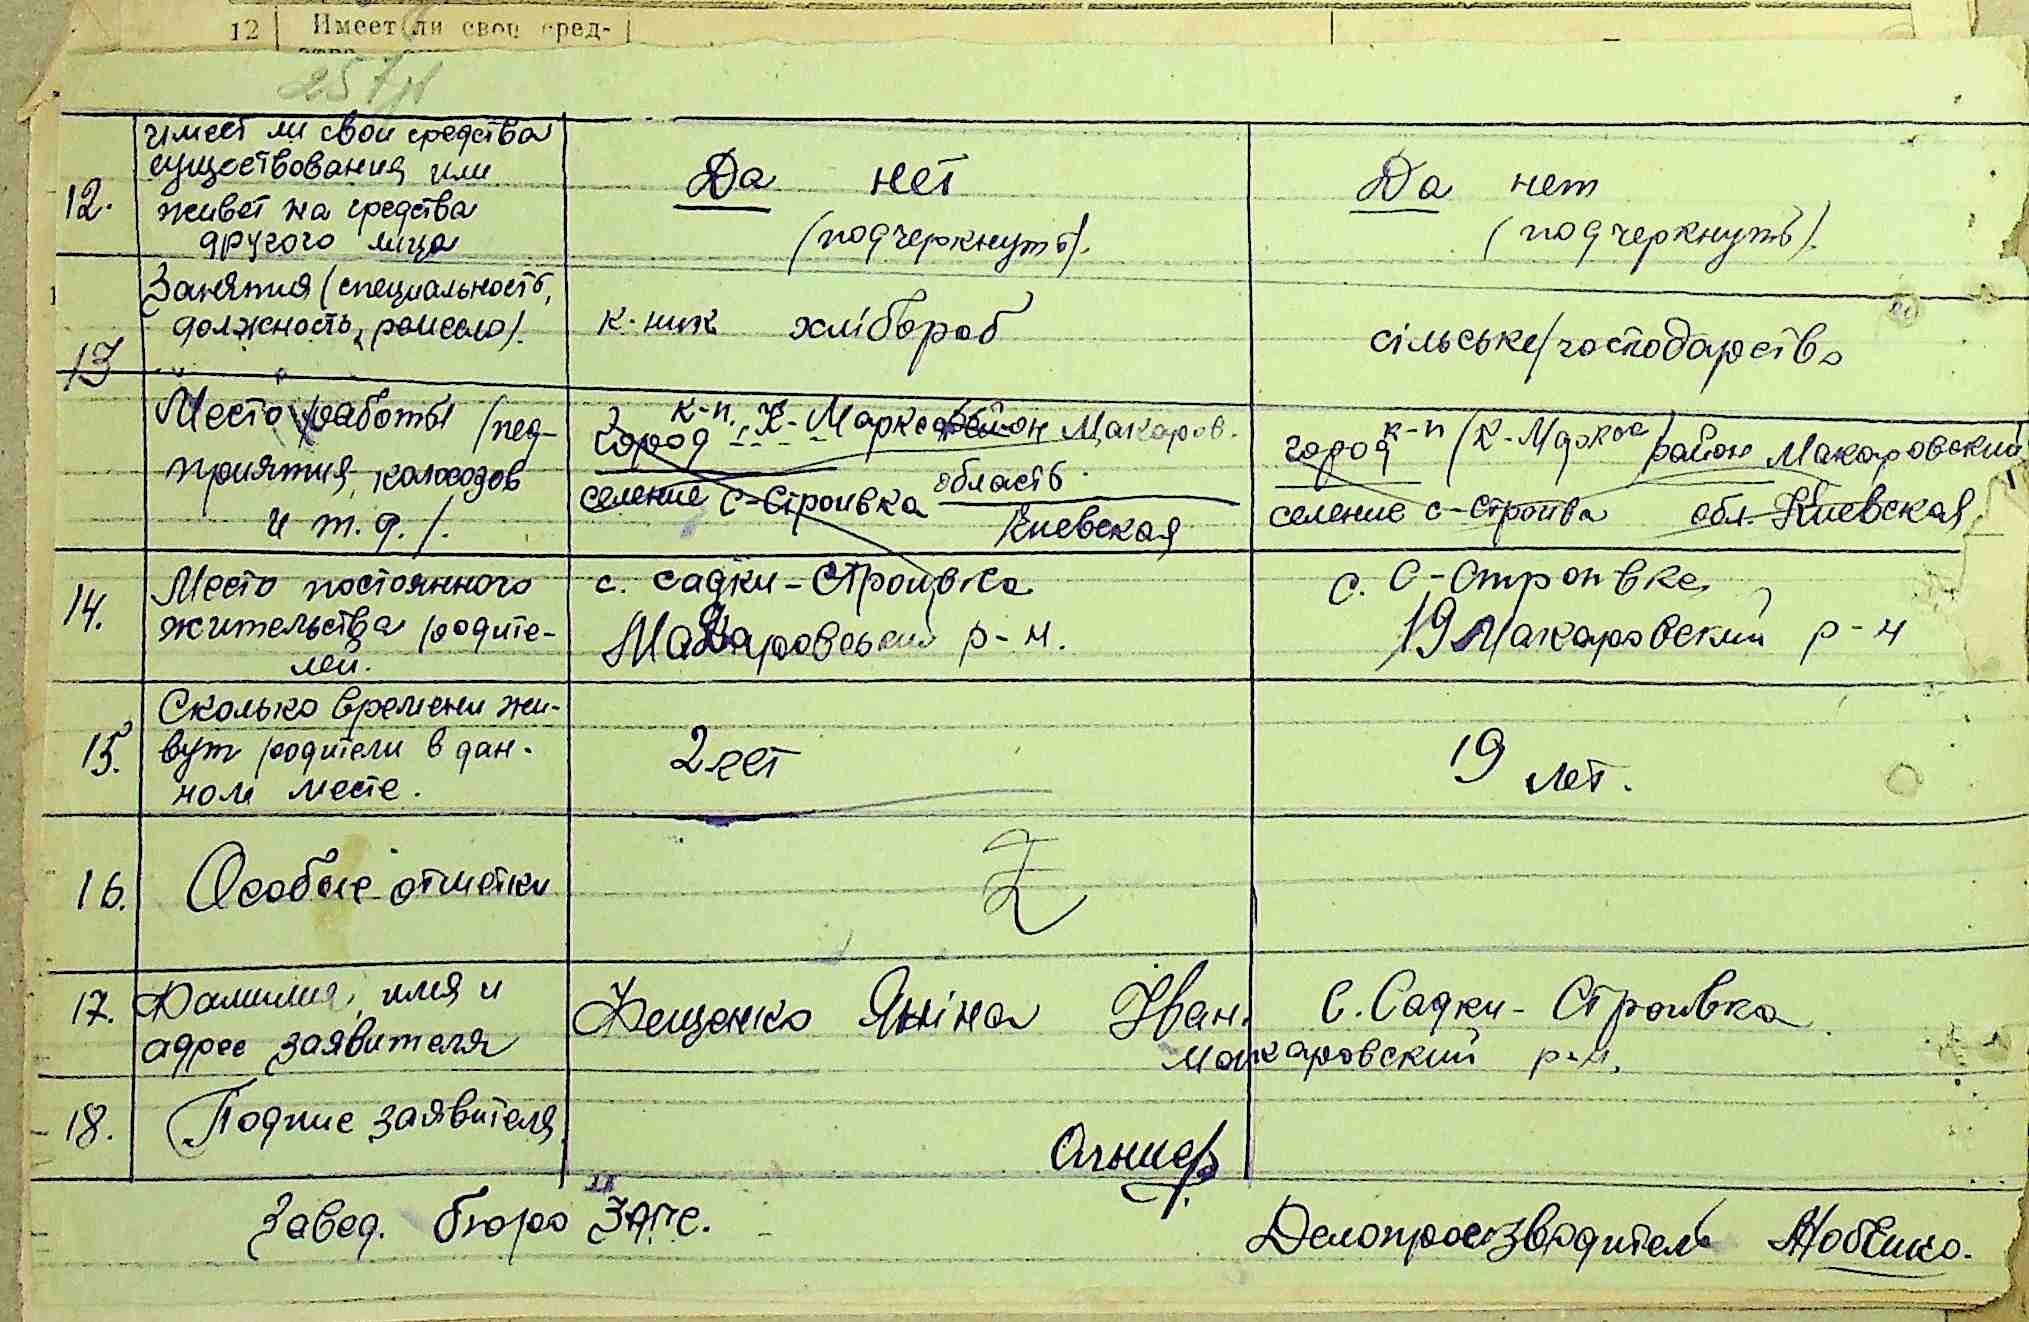 12 Имеет ли свои сред-
257
12. имеет ли свои средства
существования или
живет на средства
другого лица
Да нет
(подчеркнуть).
Да нет
(подчеркнуть).
13 Занятия (специальность,
должность, ремесло).
к-ник хлібороб
сільське господарство
Место работы (пед-
приятия, колхозов
и т.д.).
к-п. К-Маркса район Макаров.
город
селение С-Строивка область
Киевская
город к-п (К-Маркса) район Макаровский
селение С-Строива обл. Киевская
14. Место постоянного
жительства родите-
лей.
с. Садки-Строивка
Макаровский р-н.
с. С-Строивке
19 Макаровский р-н
15. Сколько времени жи-
вут родители в дан-
ном месте.
2 лет
19 лет.
16. Особые отметки
Z
17. Фамилия, имя и
адрес заявителя
Яніна Іван. С. Садки-Строивка
Макаровский р-н.
18. Подпис заявителя
Завед. бюро ЗАГС.
Делопроизводитель